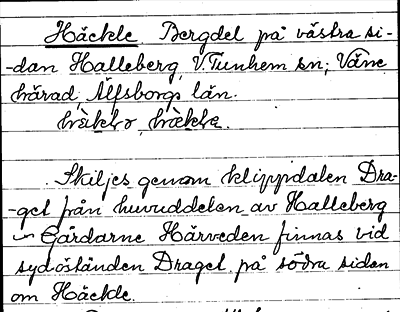 Häckle Bergdel på västra si-
-dan Halleberg, V. Tunhem sn; Väne
härad, Älfsborgs län.
hækle
Skiljes genom klippdalen Dra-
-get från huvuddelen av Halleberg
Gårdarne Härveden finnas vid
sydöständen Draget på södra sidan
om Häckle.